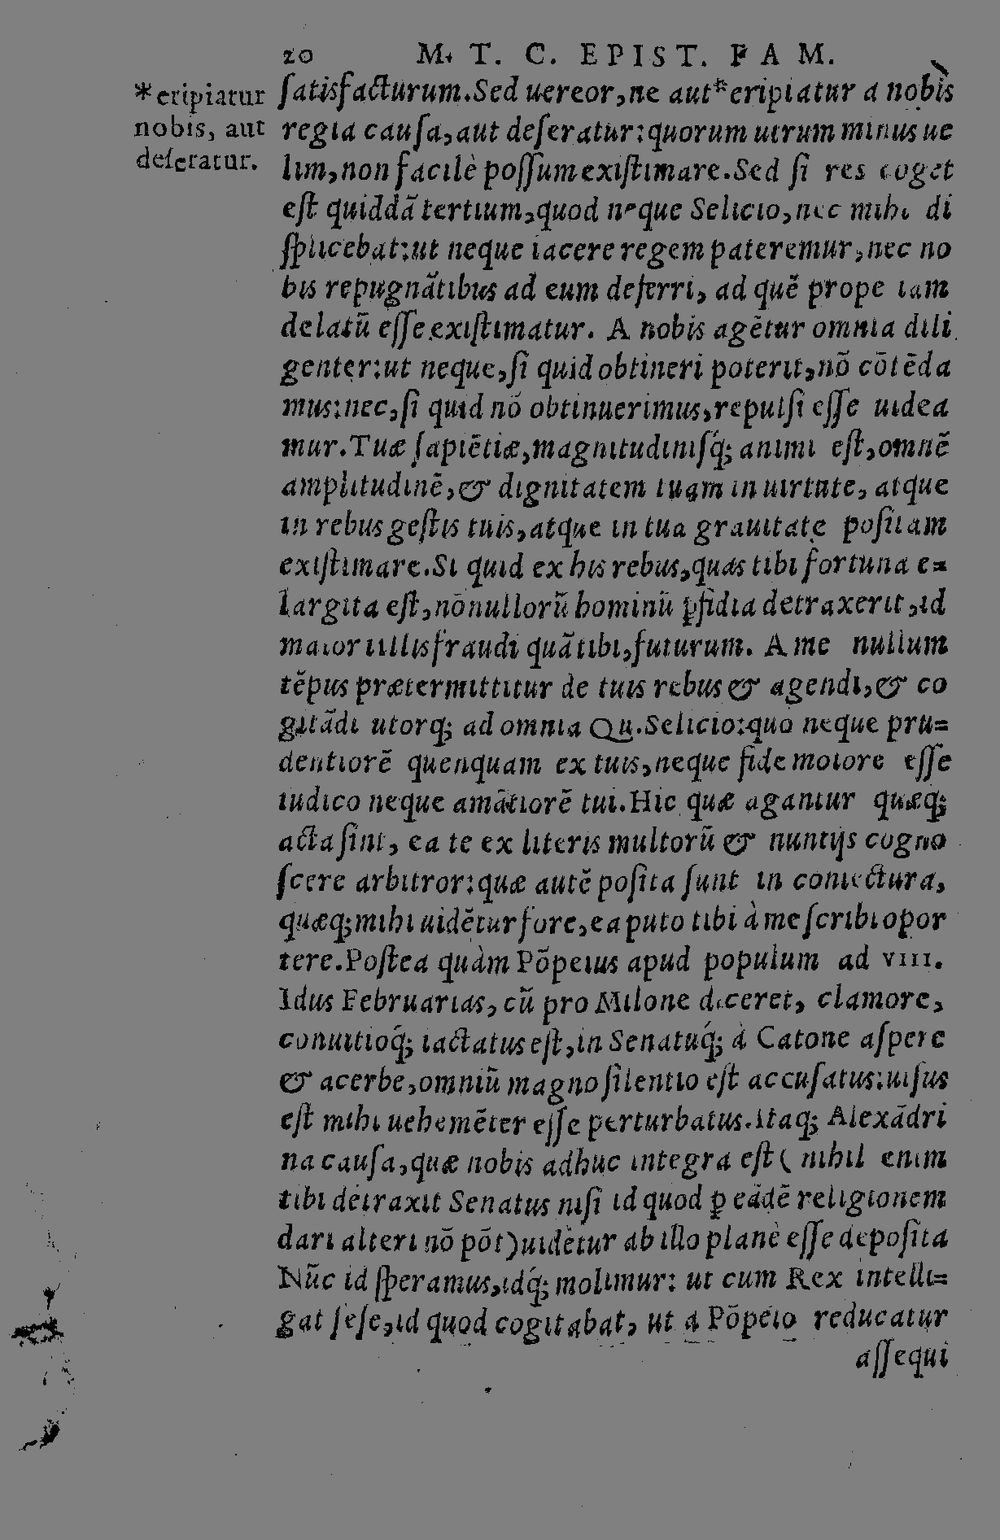 20 M. T. C. EPIST. FAM.
*eripiatur
nobis, aut
deſeratur.
ſatisfacturum.Sed uereor,ne aut*eripiatur a nobis
regia cauſa,aut deſeratur:quorum utrum minus ue
lim,non facilè poſſum exiſtimare.Sed ſi res coget
eſt quiddã tertium,quod neque Selicio,nec mihi di
ſplicebat:ut neque iacere regem pateremur,nec no
bis repugnãtibus ad eum deferri, ad quẽ prope iam
delatũ eſſe exiſtimatur. A nobis agẽtur omnia dili
genter:ut neque,ſi quid obtineri poterit,nõ cõtẽda
mus:nec,ſi quid nõ obtinuerimus,repulſi eſſe uidea
mur.Tuæ ſapiẽtiæ,magnitudiniſq́; animi eſt,omnẽ
amplitudinẽ,& dignitatem tuam in uirtute, atque
in rebus geſtis tuis,atque in tua grauitate poſitam
exiſtimare.Si quid ex his rebus,quas tibi fortuna e=
largita eſt,nõnullorũ hominũ ꝑfidia detraxerit,id
maiori illis fraudi quã tibi,futurum. A me nullum
tẽpus prætermittitur de tuis rebus & agendi,& co
gitãdi utorq; ad omnia Qu.Selicio:quo neque pru=
dentiorẽ quenquam ex tuis,neque fide moiore eſſe
iudico neque amãtiorẽ tui.Hic quæ agantur quæq;
acta ſint, ea te ex literis multorũ & nuntijs cogno
ſcere arbitror:quæ autẽ poſita ſunt in coniectura,
quæq;mihi uidẽtur fore,ea puto tibi à me ſcribi opor
tere.Poſtea quàm Põpeius apud populum ad VIII.
Idus Februarias,cũ pro Milone diceret, clamore,
conuitioq́; iactatus eſt,in Senatuq́; à Catone aſpere
& acerbe,omniũ magno ſilentio eſt accuſatus:uiſus
eſt mihi uehemẽter eſſe perturbatus.itaq; Alexãdri
na cauſa,quæ nobis adhuc integra eſt( nihil enim
tibi detraxit Senatus niſi id quod ꝑ eãdẽ religionem
dari alteri nõ põt)uidetur ab illo planè eſſe depoſita
Nũc id ſperamus,idq́; molimur: ut cum Rex intelli=
gat ſeſe,id quod cogitabat, ut a Põpeio reducatur
aſſequi